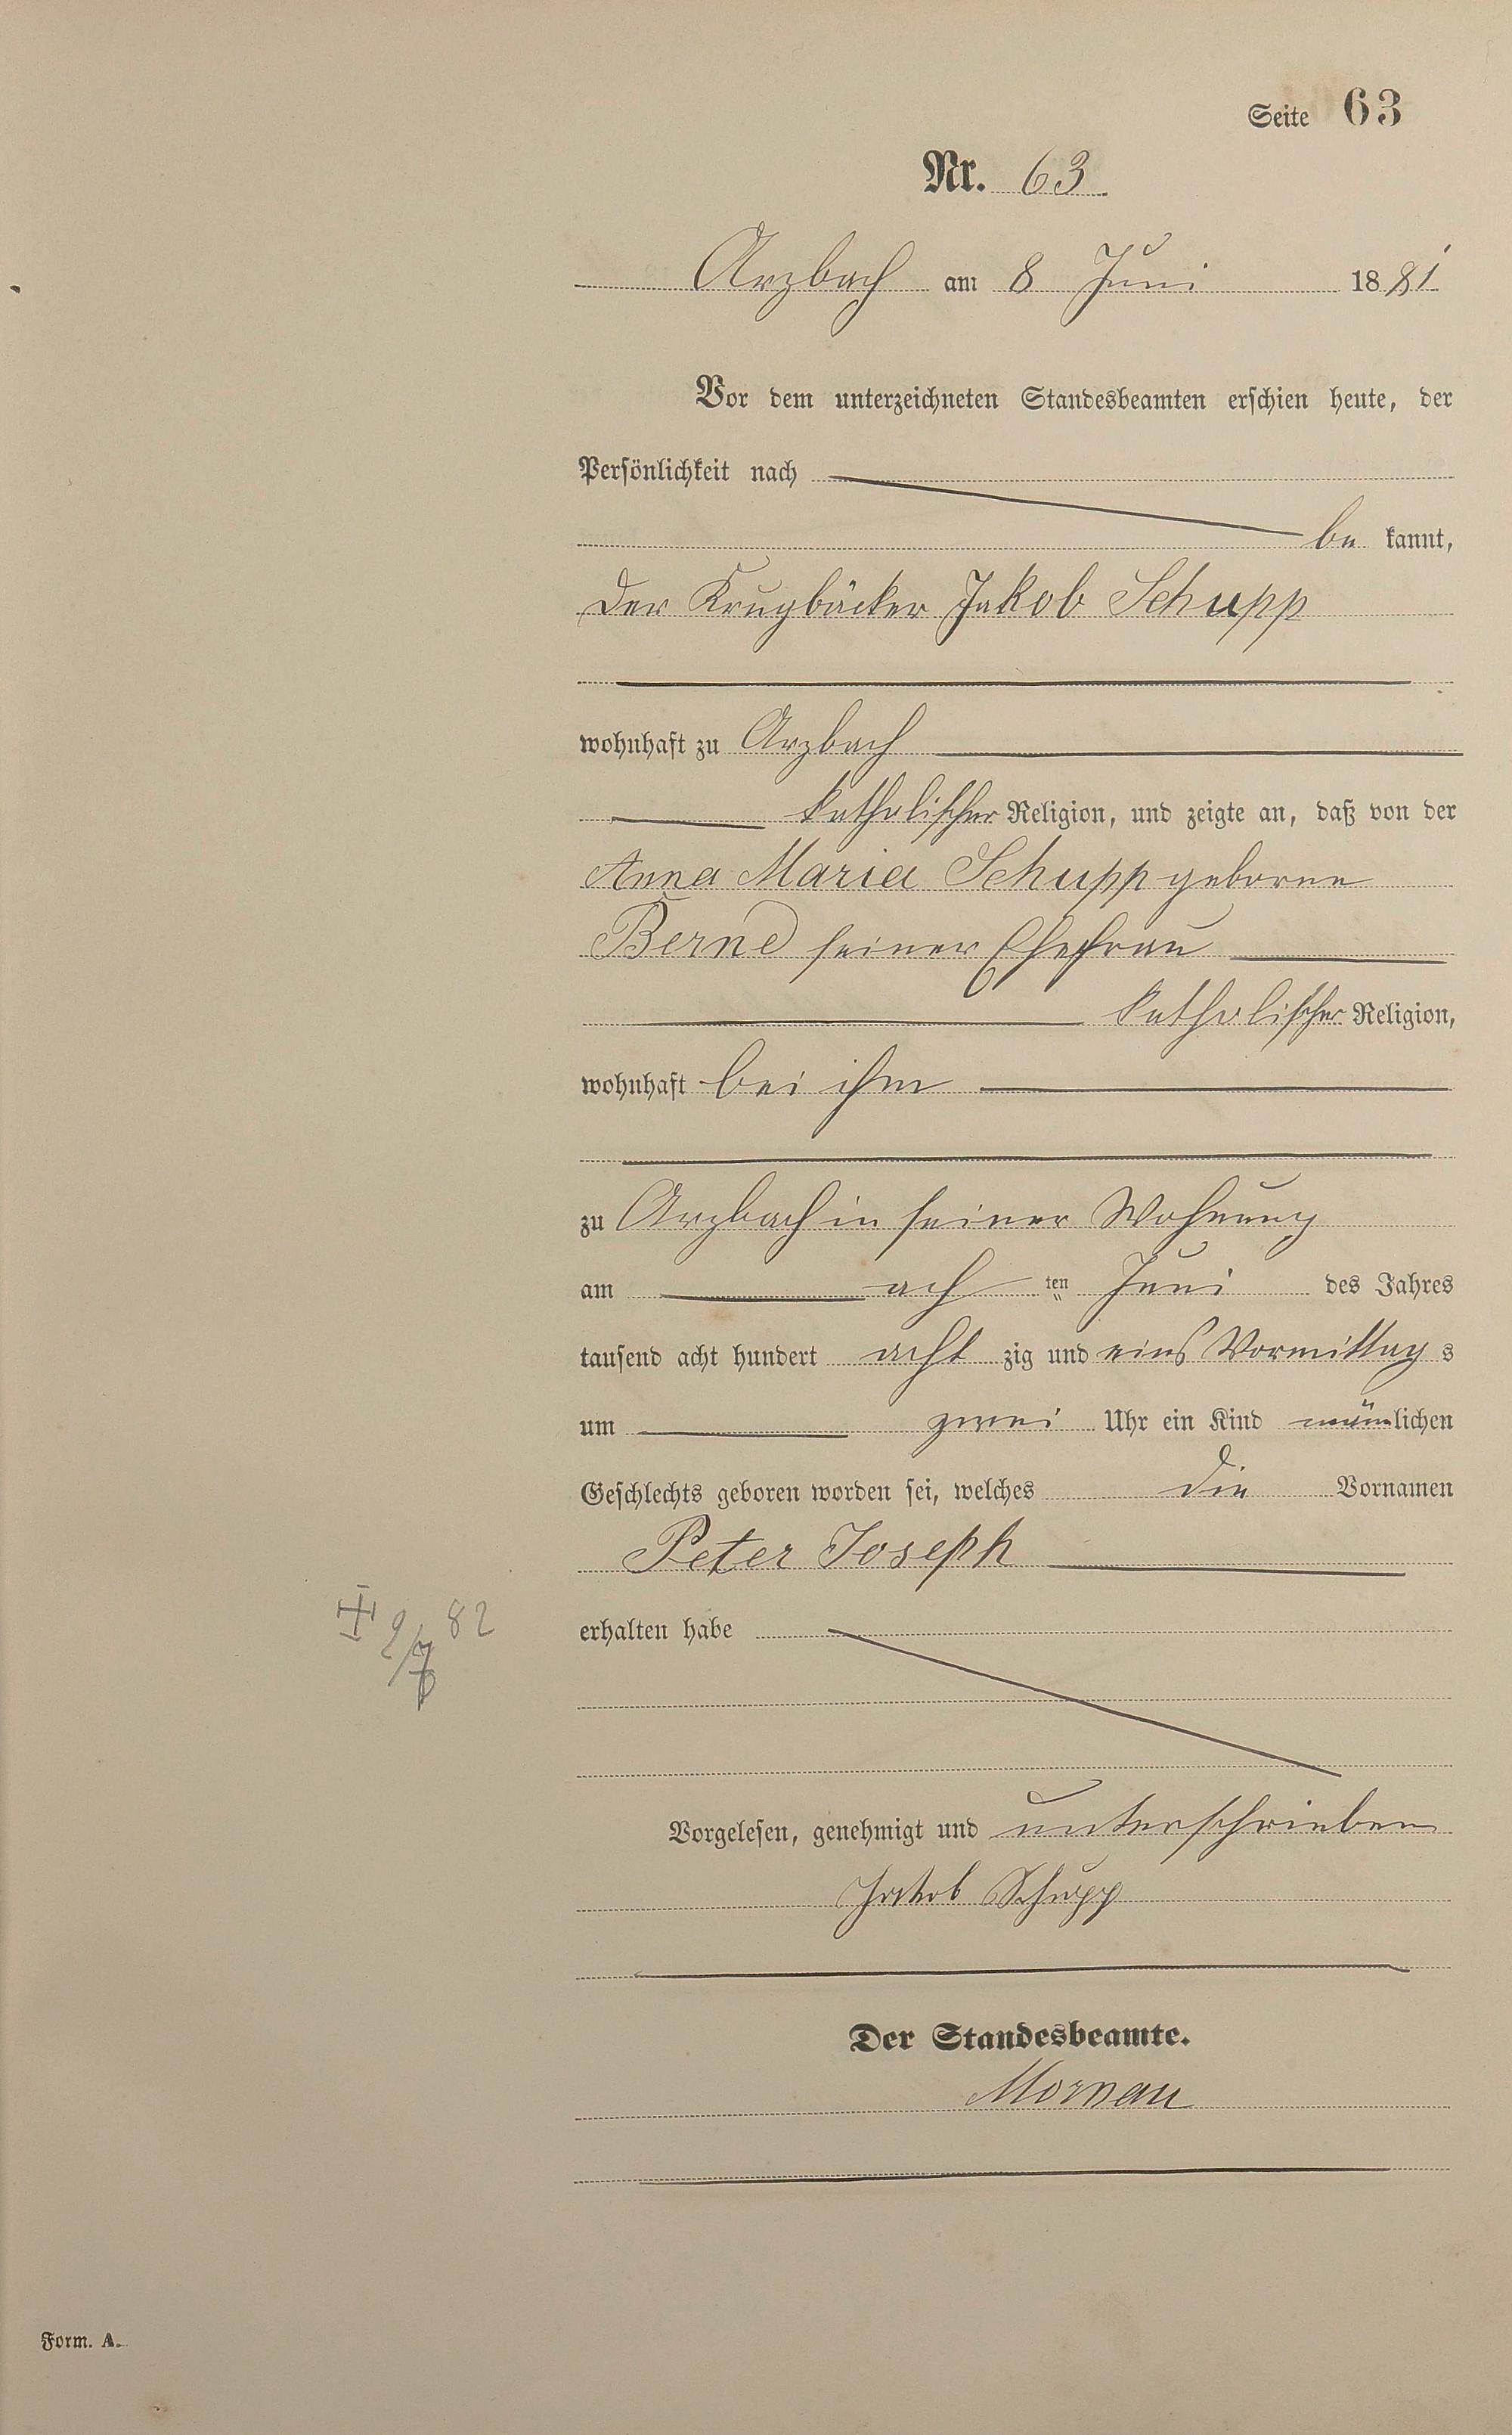 Seite 63
Nr. 63
Arzbach am 8 Juni 1881
Vor dem unterzeichneten Standesbeamten erschien heute, der
Persönlichkeit nach
be kannt,
der Krugbäcker Jakob Schupp
wohnhaft zu Arzbach
katholischer Religion, und zeigte an, daß von der
Anna Maria Schupp geborne
Bernd seiner Ehefrau
katholischer Religion,
wohnhaft bei ihm
zu Arzbach in seiner Wohnung
am ach ten Juni des Jahres
tausend acht hundert acht zig und eins Vormittag s
um zwei Uhr ein Kind männlichen
Geschlechts geboren worden sei, welches die Vornamen
Peter Joseph
82
erhalten habe
Vorgelesen, genehmigt und unterschrieben
Jakob Schupp
Der Standesbeamte.
Mornau
Form. A.